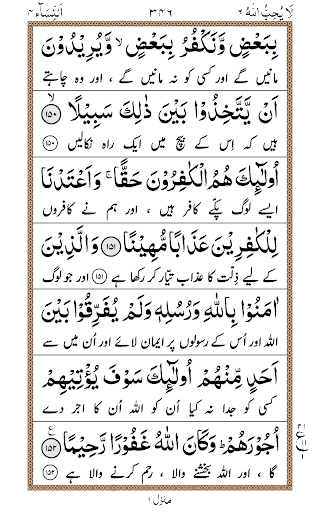 لَا یُحِبُّ اللّٰهُ ٦ ٣٤٦ اَلنِّسَآء ٤
بِبَعْضٍ وَّنَكْفُرُ بِبَعْضٍ ۙ وَّیُرِیْدُوْنَ
مانیں گے اور کسی کو نہ مانیں گے ، اور وہ چاہتے
اَنْ یَّتَّخِذُوْا بَیْنَ ذٰلِكَ سَبِیْلًا ۙ ﴿۱۵۰﴾
ہیں کہ اِس کے بیچ میں ایک راہ نکالیں ﴿۱۵۰﴾
اُولٰٓئِكَ هُمُ الْكٰفِرُوْنَ حَقًّا ۚ وَاَعْتَدْنَا
ایسے لوگ پکّے کافر ہیں ، اور ہم نے کافروں
لِلْكٰفِرِیْنَ عَذَابًا مُّهِیْنًا ﴿۱۵۱﴾ وَالَّذِیْنَ
کے لیے ذِلّت کا عذاب تیّار کر رکھا ہے ﴿۱۵۱﴾ اور جو لوگ
اٰمَنُوْا بِاللّٰهِ وَرُسُلِهٖ وَلَمْ یُفَرِّقُوْا بَیْنَ
اللہ اور اُس کے رسولوں پر ایمان لائے اور اُن میں سے
اَحَدٍ مِّنْهُمْ اُولٰٓئِكَ سَوْفَ یُؤْتِیْهِمْ
کسی کو جدا نہ کیا اُن کو اللہ اُن کا اجر دے
اُجُوْرَهُمْ ؕ وَكَانَ اللّٰهُ غَفُوْرًا رَّحِیْمًا ﴿۱۵۲﴾ ع
گا ، اور اللہ بخشنے والا ، رحم کرنے والا ہے ﴿۱۵۲﴾
منزل ۱